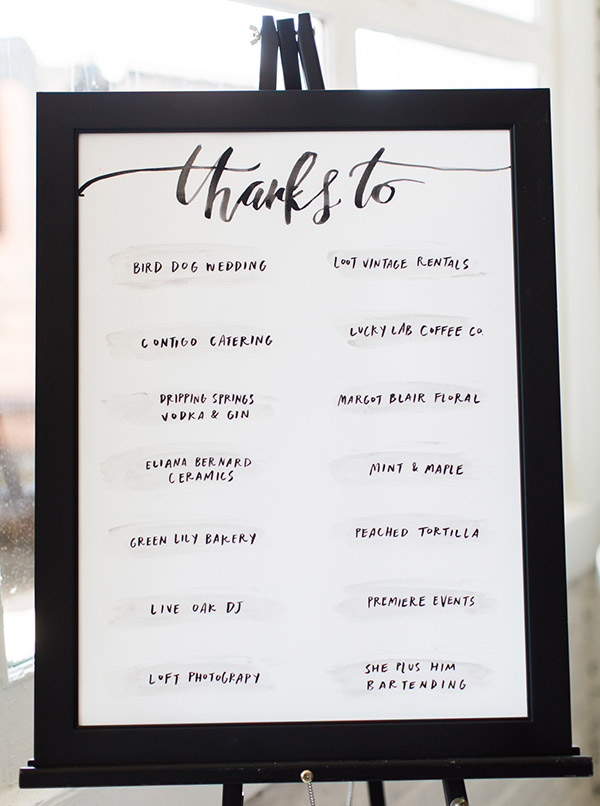 thanks to
BIRD DOG WEDDING
CONTIGO CATERING
DRIPPING SPRINGS
VODKA & GIN
ELIANA BERNARD
CERAMICS
GREEN LILY BAKERY
LIVE OAK DJ
LOFT PHOTOGRAPY
LOOT VINTAGE RENTALS
LUCKY LAB COFFEE CO.
MARGOT BLAIR FLORAL
MINT & MAPLE
PEACHED TORTILLA
PREMIERE EVENTS
SHE PLUS HIM
BARTENDING